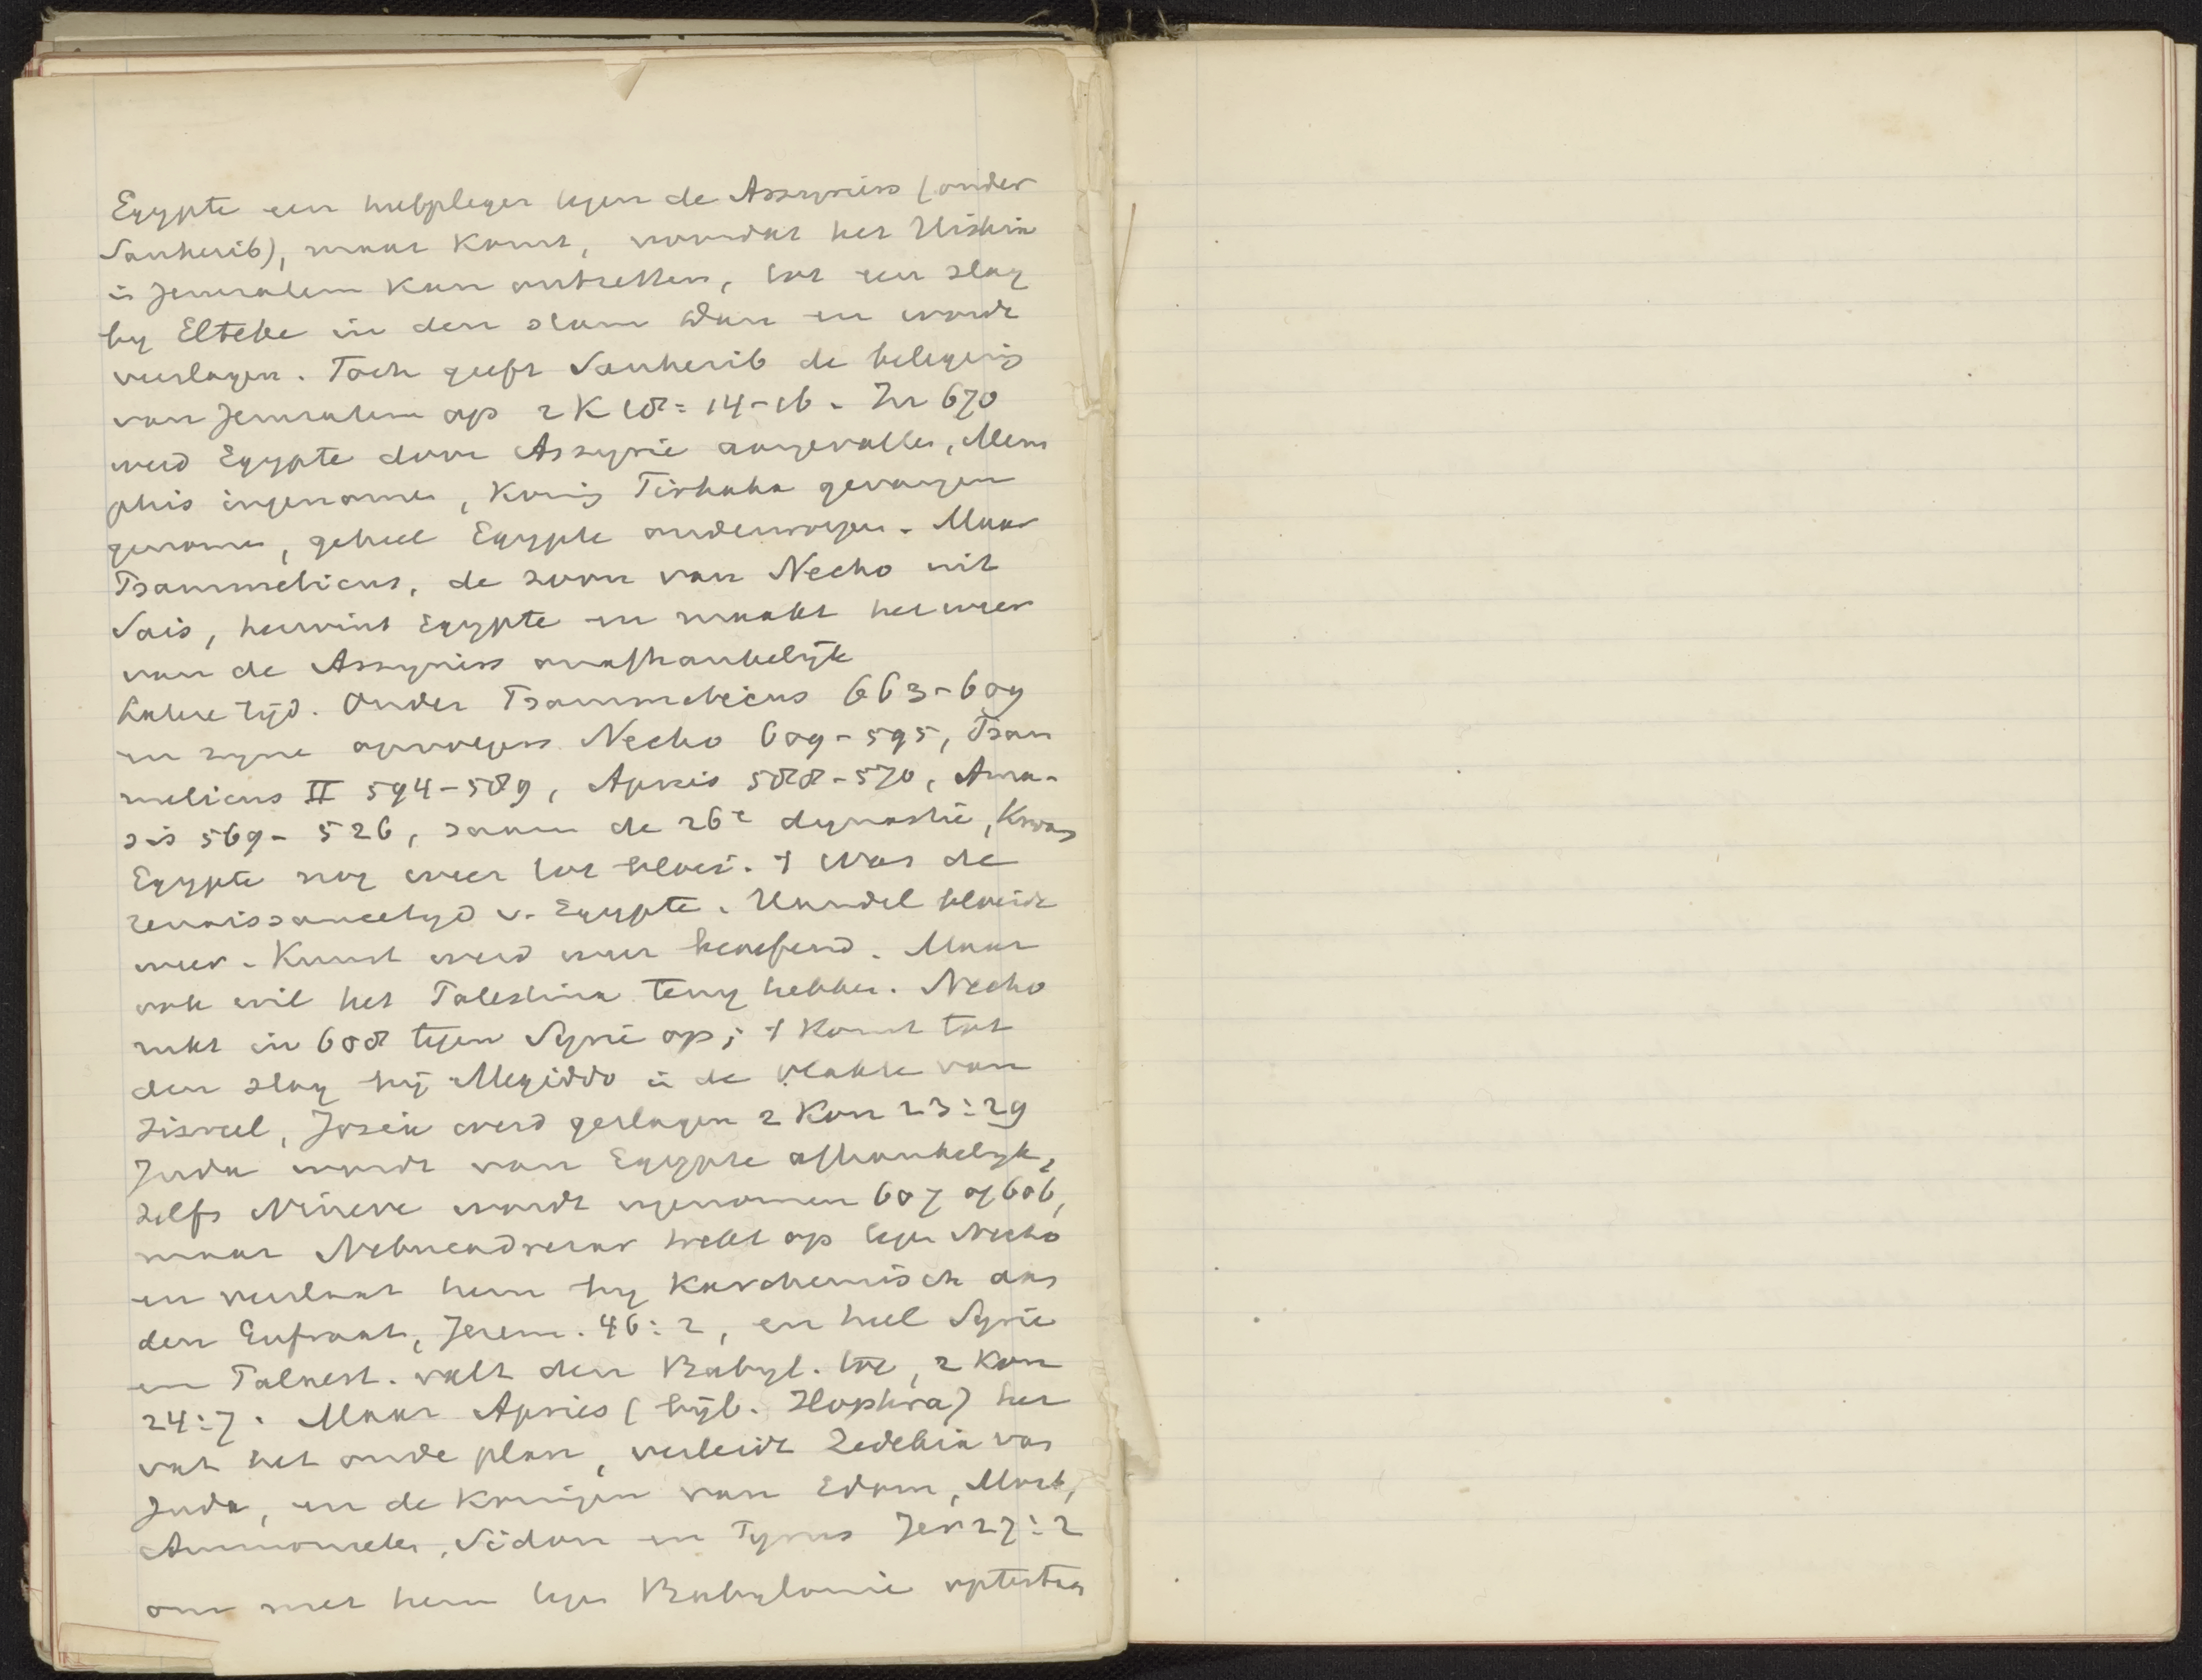 Egypte een hulpleger tegen de Assyriërs (onder
Sanherib), maar komt, voordat het Hiskia
in Jeruzalem kan ontzetten, tot een slag
by Elteke in den stam Dan en wordt
verslagen. Toch geeft Sanherib de belegering
van Jeruzalem op 2 K 18: 14-16. In 670
werd Egypte door Assyrië aangevallen, Mem
phis ingenomen, Koning Tirhaka gevangen
genomen, geheel Egypte onderworpen. Maar
Psammetichus, de zoon van Necho uit
Sais, herwint Egypte en maakt het weer
van de Assyriers onafhankelijk
Latere tijd. Onder Psammetichus 663-609
en zyne opvolgers Necho 609-595, Psam
metichus II 594-589, Apries 588-570, Ama-
sis 569-526, saam de 26e dynastie, kwam
Egypte nog weer tot bloei. 't Was de
renaissancetyd v. Egypte. Handel bloeide
weer. Kunst werd weer beoefend. Maar
ook wil het Palestina terug hebben. Necho
rukt in 608 tegen Syrië op; 't komt tot
den slag bij Megiddo in de vlakte van
Jisreel, Josia werd geslagen 2 Kon 23:29
Juda wordt van Egypte afhankelyk,
zelfs Nineve wordt ingenomen 607 of 606,
maar Nebucadrezar trekt op tegen Necho
en verslaat hem by Karchemisch aan
den Eufraat, Jerem. 46:2, en heel Syrië
en Palaest. valt den Babyl. toe, 2 Kon
24:7. Maar Apries (bijb. Hophra) her
vat het oude plan, verleidt Zedekia van
Juda, en de koningen van Edom, Moab,
Ammonieten, Sidon en Tyrus Jer 27:2
om met hem tegen Babylonië optestaan